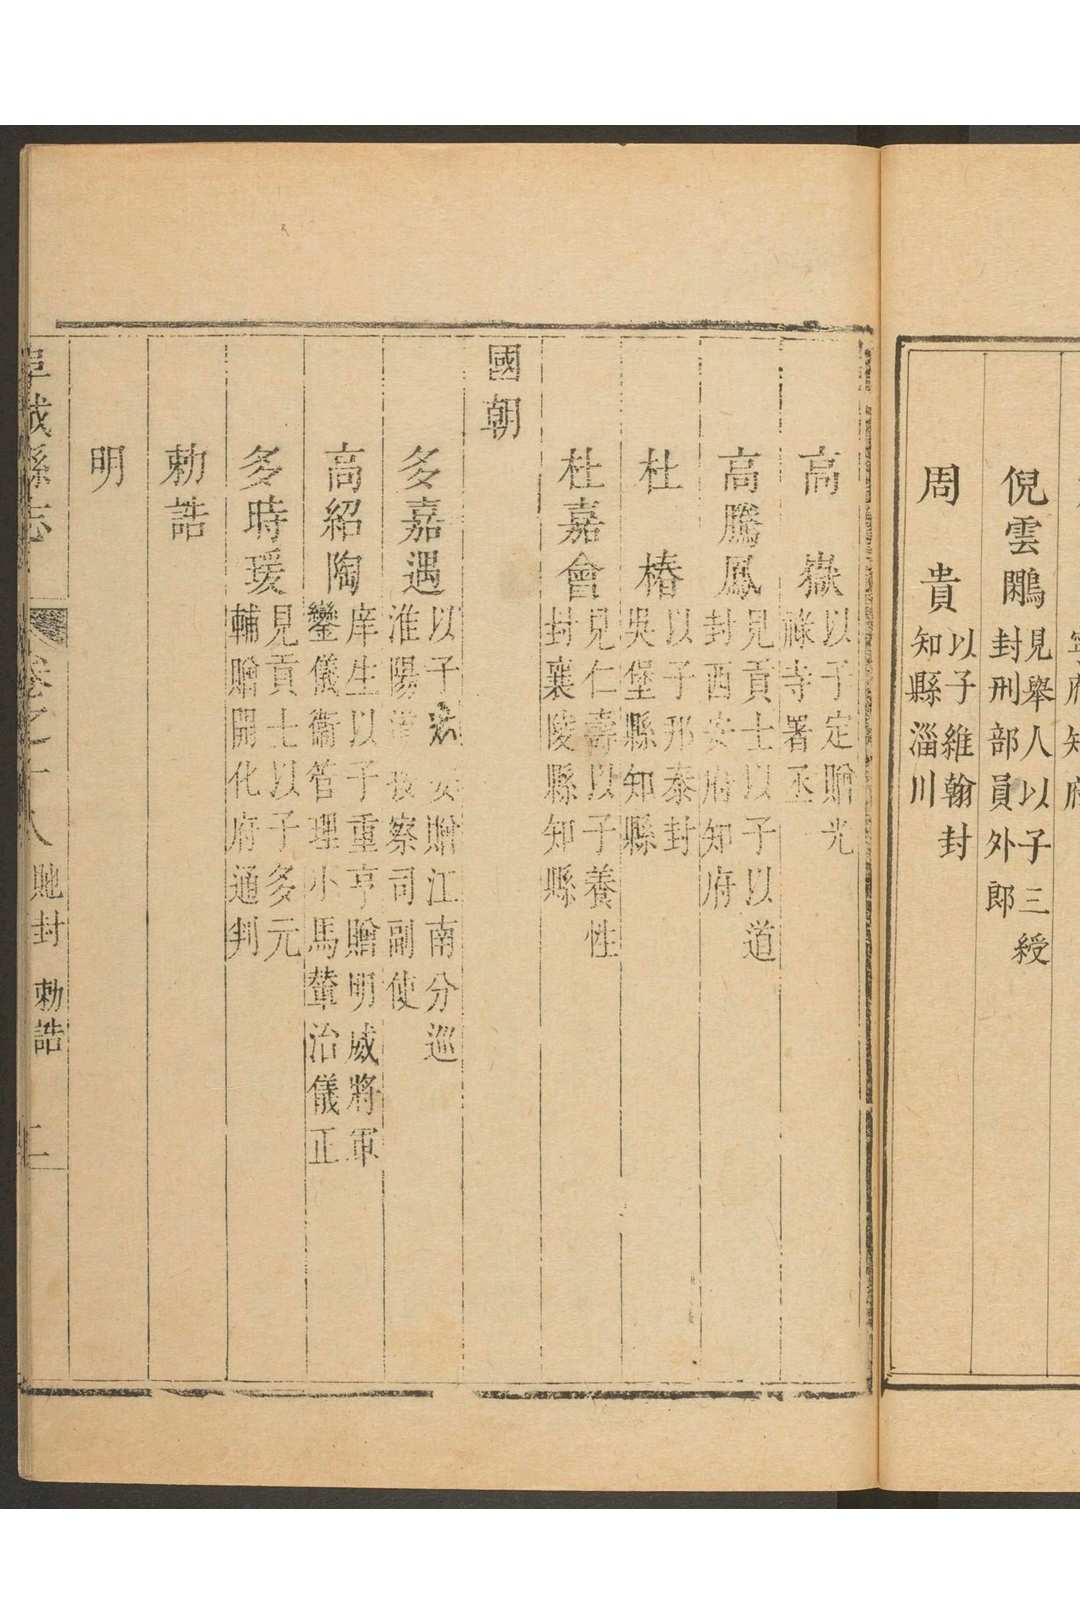 寧府知府
倪雲鵰
見舉人以子三綬
封刑部員外郎
周貴
以子維翰封
知縣淄川
高嶽
以子定贈光
祿寺署丞
高騰鳳
見貢士以子以道
封西安府知府
杜椿
以子邢泰封
吳堡縣知縣
杜嘉會
見仁壽以子養性
封襄陵縣知縣
國朝
多嘉遇
以子 贈江南分巡
淮陽 按察司副使
高紹陶
庠生以子重亨贈明威將軍
鑾儀衞管理小馬輦治儀正
多時瑗
見貢士以子多元
輔贈開化府通判
勅誥
明
阜城縣志
卷之十八
貤封
勅誥
二